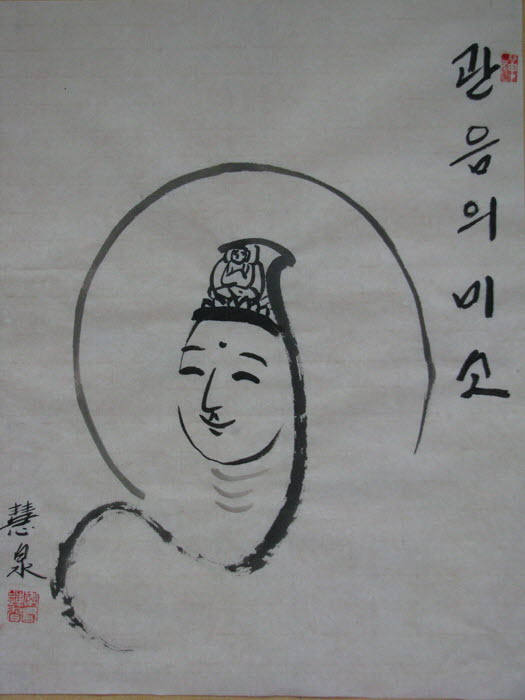 관음의미소
慧泉